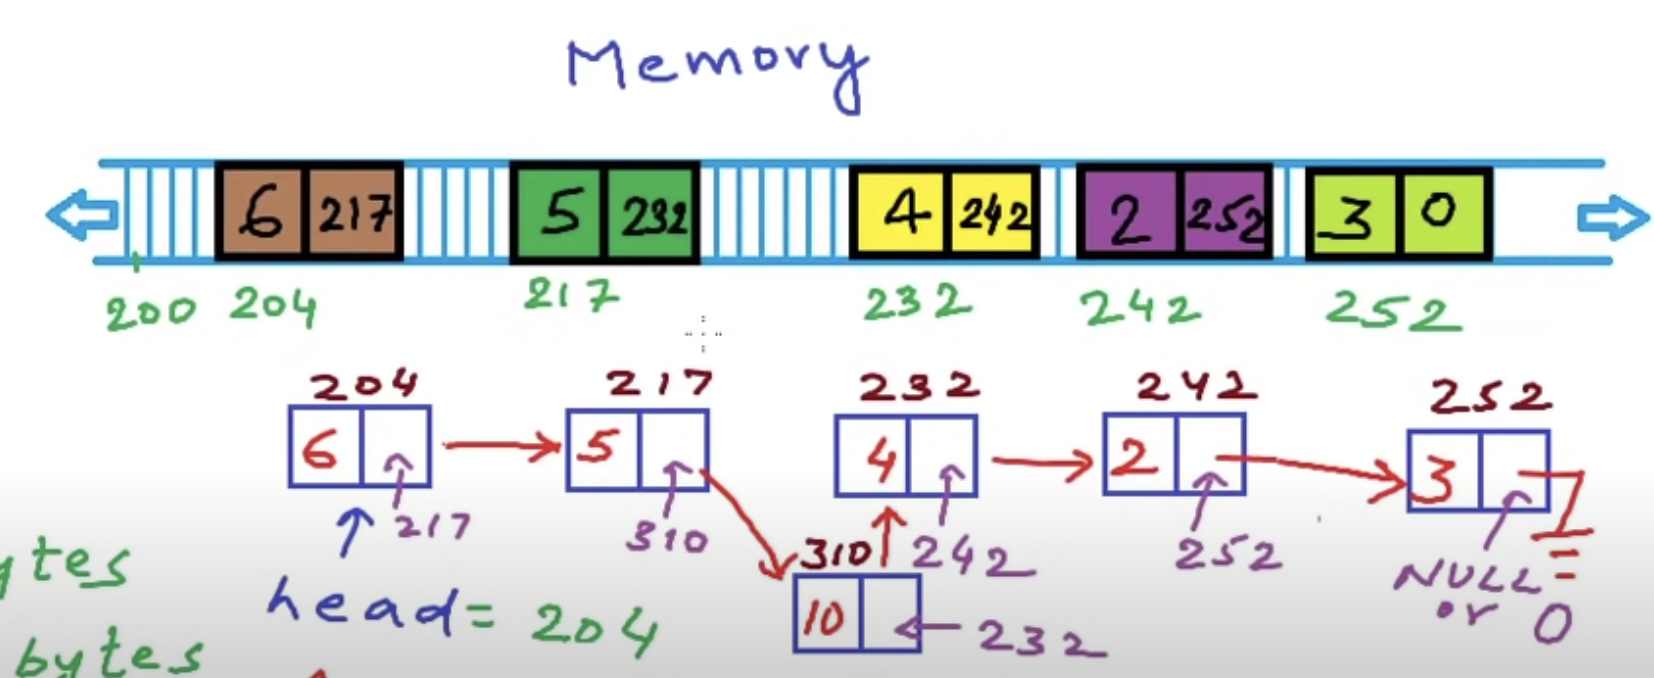 Memory
6 217 5 232 4 242 2 252 3 0
200 204 217 232 242 252
204 217 232 242 252
6 5 4 2 3
217 310 310 242 252 NULL
or 0
ytes
head = 204 10 232
bytes